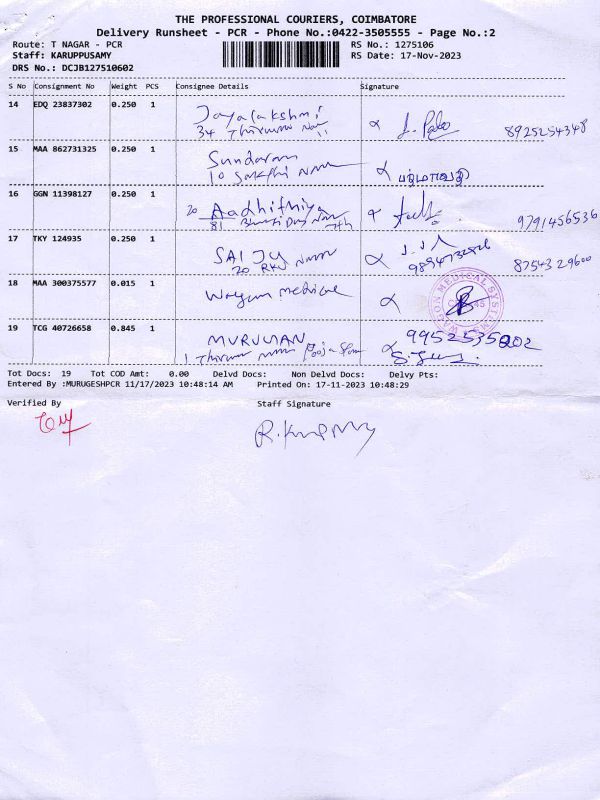 THE PROFESSIONAL COURIERS, COIMBATORE
Delivery Runsheet - PCR - Phone No.:0422-3505555 - Page No.:2
Route: T NAGAR - PCR RS No.: 1275106
Staff: KARUPPUSAMY RS Date: 17-Nov-2023
DRS No.: DCJB127510602
S No Consignment No Weight PCS Consignee Details Signature
14 EDQ 23837302 0.250 1 Jayalakshmi
34 8925254348
15 MAA 862731325 0.250 1 Sundaram
10
16 GGN 11398127 0.250 1 20 Aadhithiya
81 7th 9791456536
17 TKY 124935 0.250 1 SAIJU J.J
20 RKV 8754329600
18 MAA 300375577 0.015 1 medical
WAGON MEDICAL SYSTEMS
19 TCG 40726658 0.845 1 MURUGAN 9952535202
1
Tot Docs: 19 Tot COD Amt: 0.00 Delvd Docs: Non Delvd Docs: Delvy Pts:
Entered By :MURUGESHPCR 11/17/2023 10:48:14 AM Printed On: 17-11-2023 10:48:29
Verified By Staff Signature